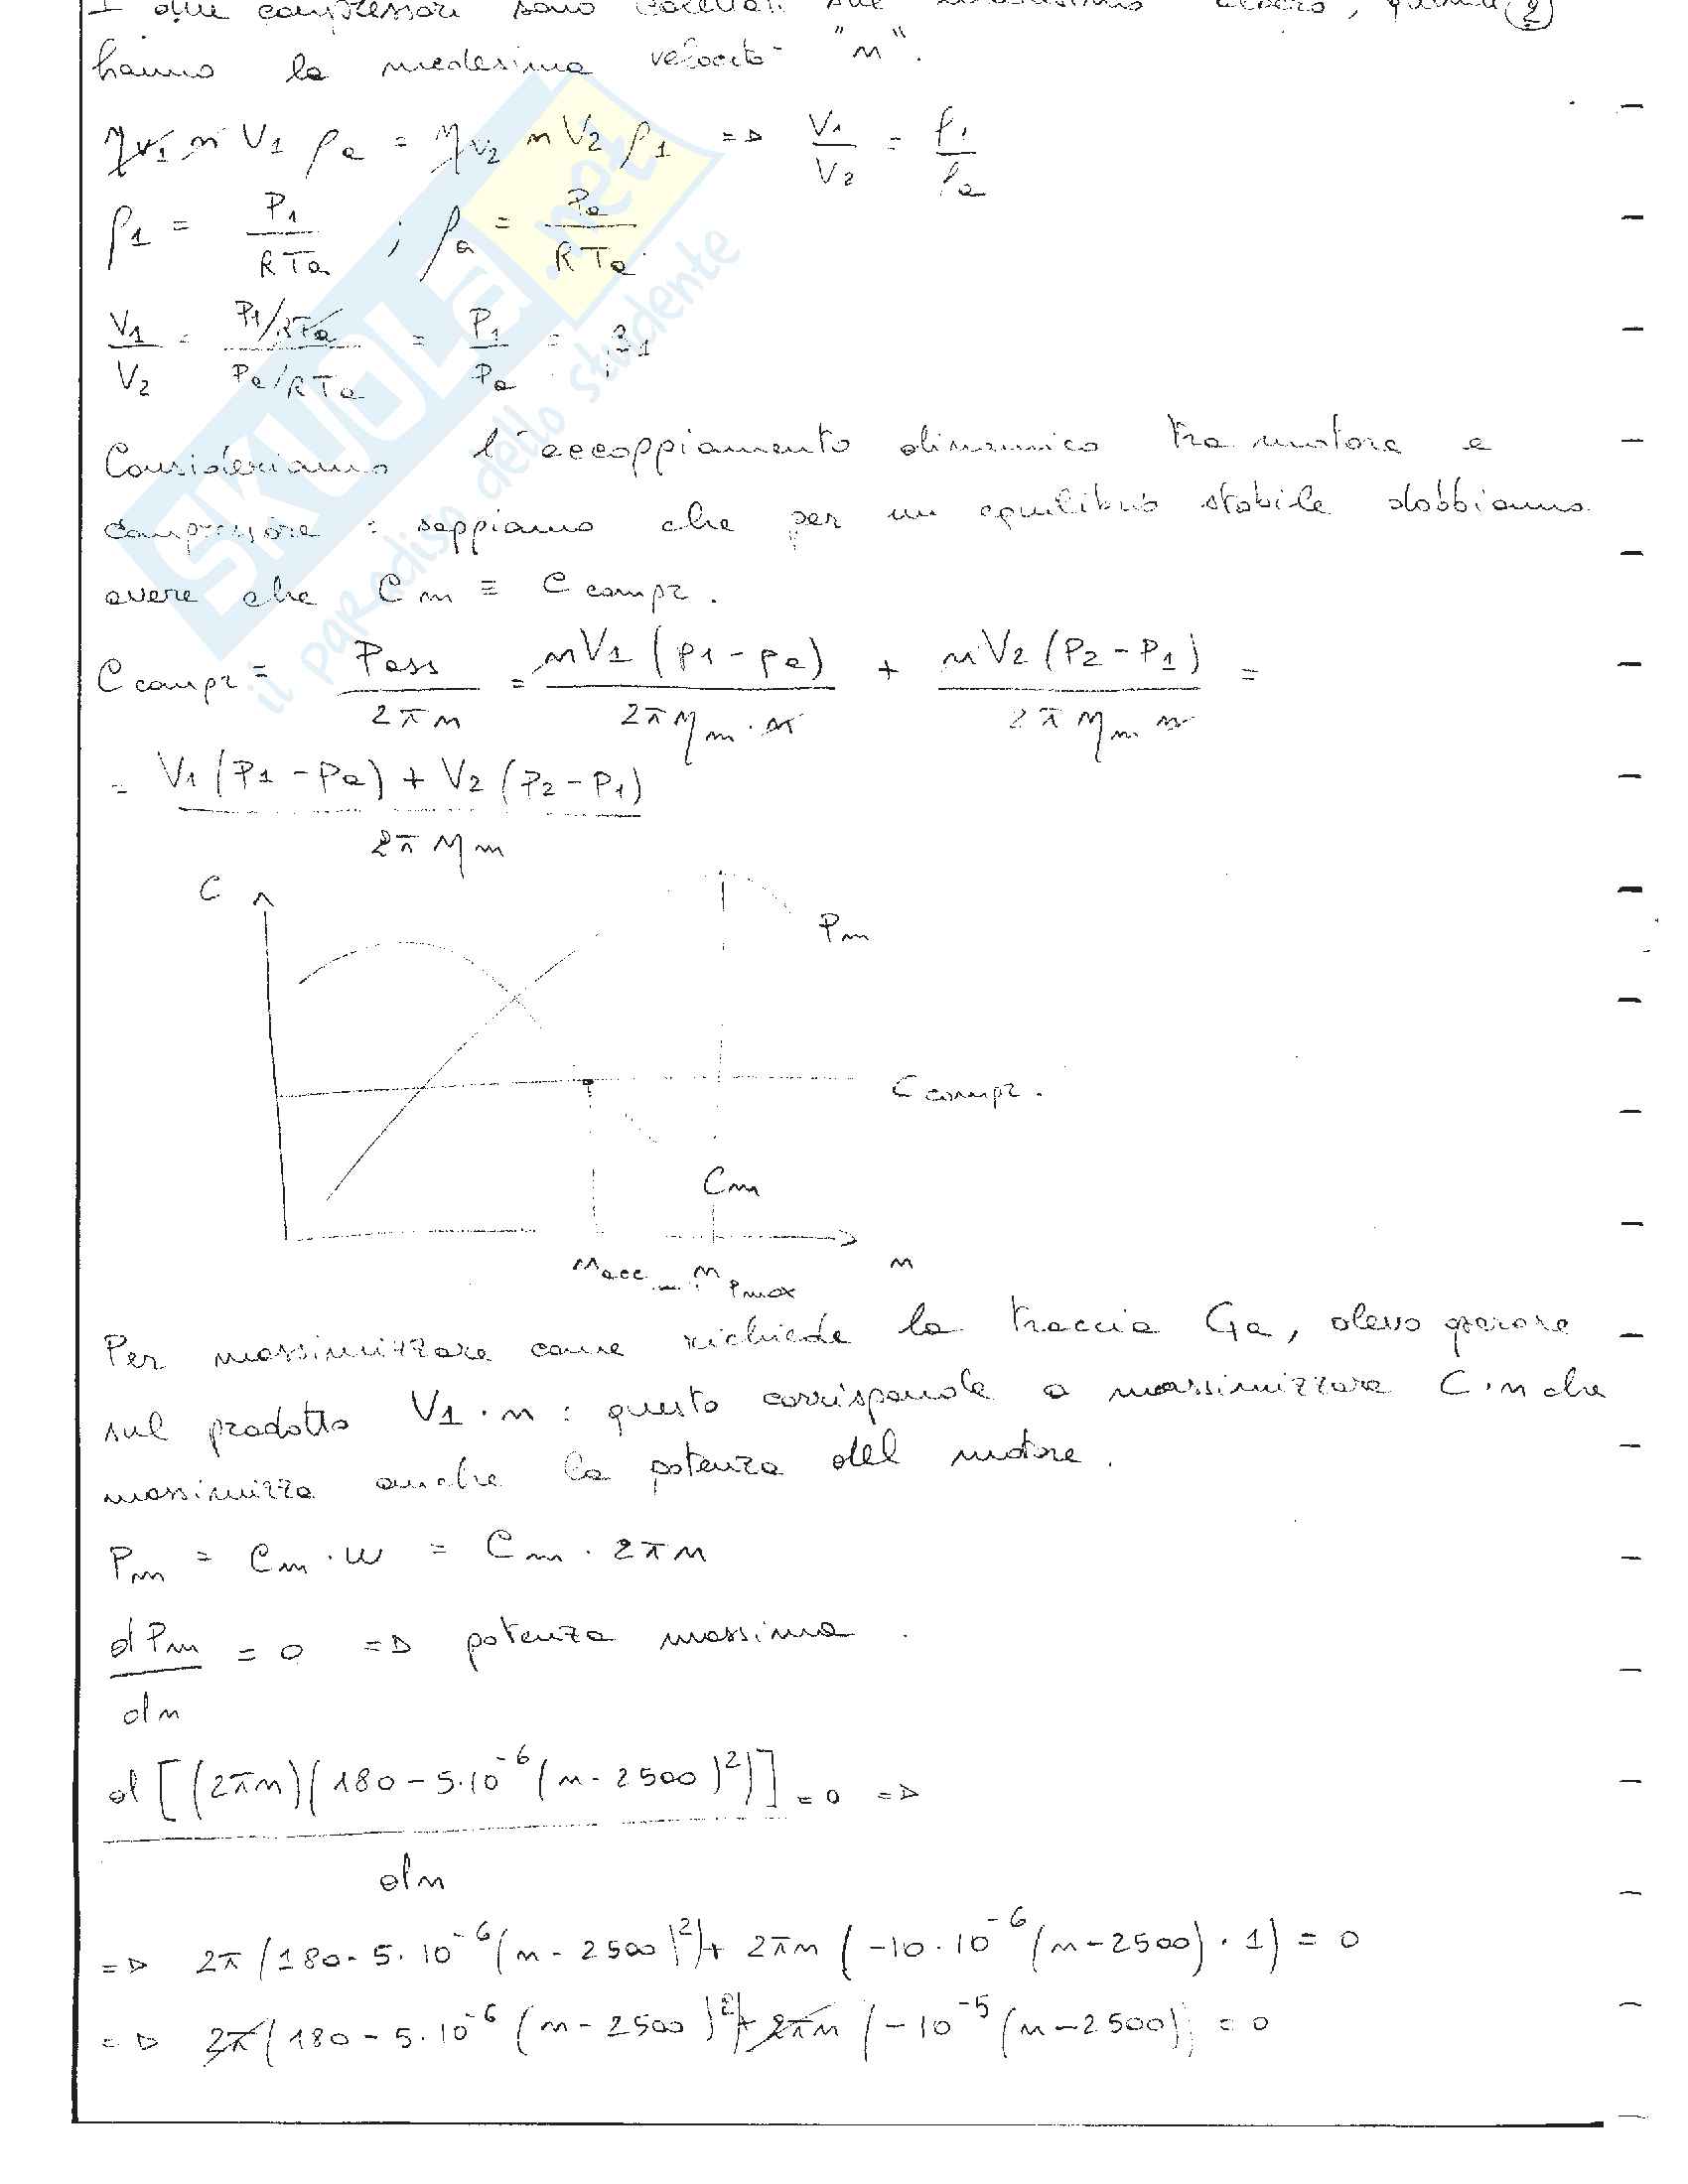 I due compressori sono calettati sul medesimo albero, quindi (2)
hanno la medesima velocità "n".
ηv1 n V1 ρa = ηv2 n V2 ρ1 => V1/V2 = ρ1/ρa
ρ1 = P1/RTa ; ρa = Pa/RTa
V1/V2 = (P1/RTa)/(Pa/RTa) = P1/Pa = β1
Consideriamo l'accoppiamento dinamico tra motore e
compressore : sappiamo che per un equilibrio stabile dobbiamo
avere che Cm ≡ Ccompr.
Ccompr = Pass/2πn = nV1(p1-pa)/2πηm·n + nV2(P2-P1)/2πηm n =
= V1(P1-Pa)+V2(P2-P1)/2πηm
C
Pm
Ccompr.
Cm
nacc nPmax n
Per massimizzare come richiede la traccia Ga, devo operare
sul prodotto V1·n : questo corrisponde a massimizzare C·n che
massimizza anche la potenza del motore.
Pm = Cm·w = Cm·2πn
dPm/dn = 0 => potenza massima.
d[(2πn)(180-5·10⁻⁶(n-2500)²)]/dn = 0 =>
=> 2π(180-5·10⁻⁶(n-2500)²)+2πn(-10·10⁻⁶(n-2500)·1) = 0
=> 2π(180-5·10⁻⁶(n-2500)²)+2πn(-10⁻⁵(n-2500)) = 0
SKUOLA.net
il paradiso dello studente